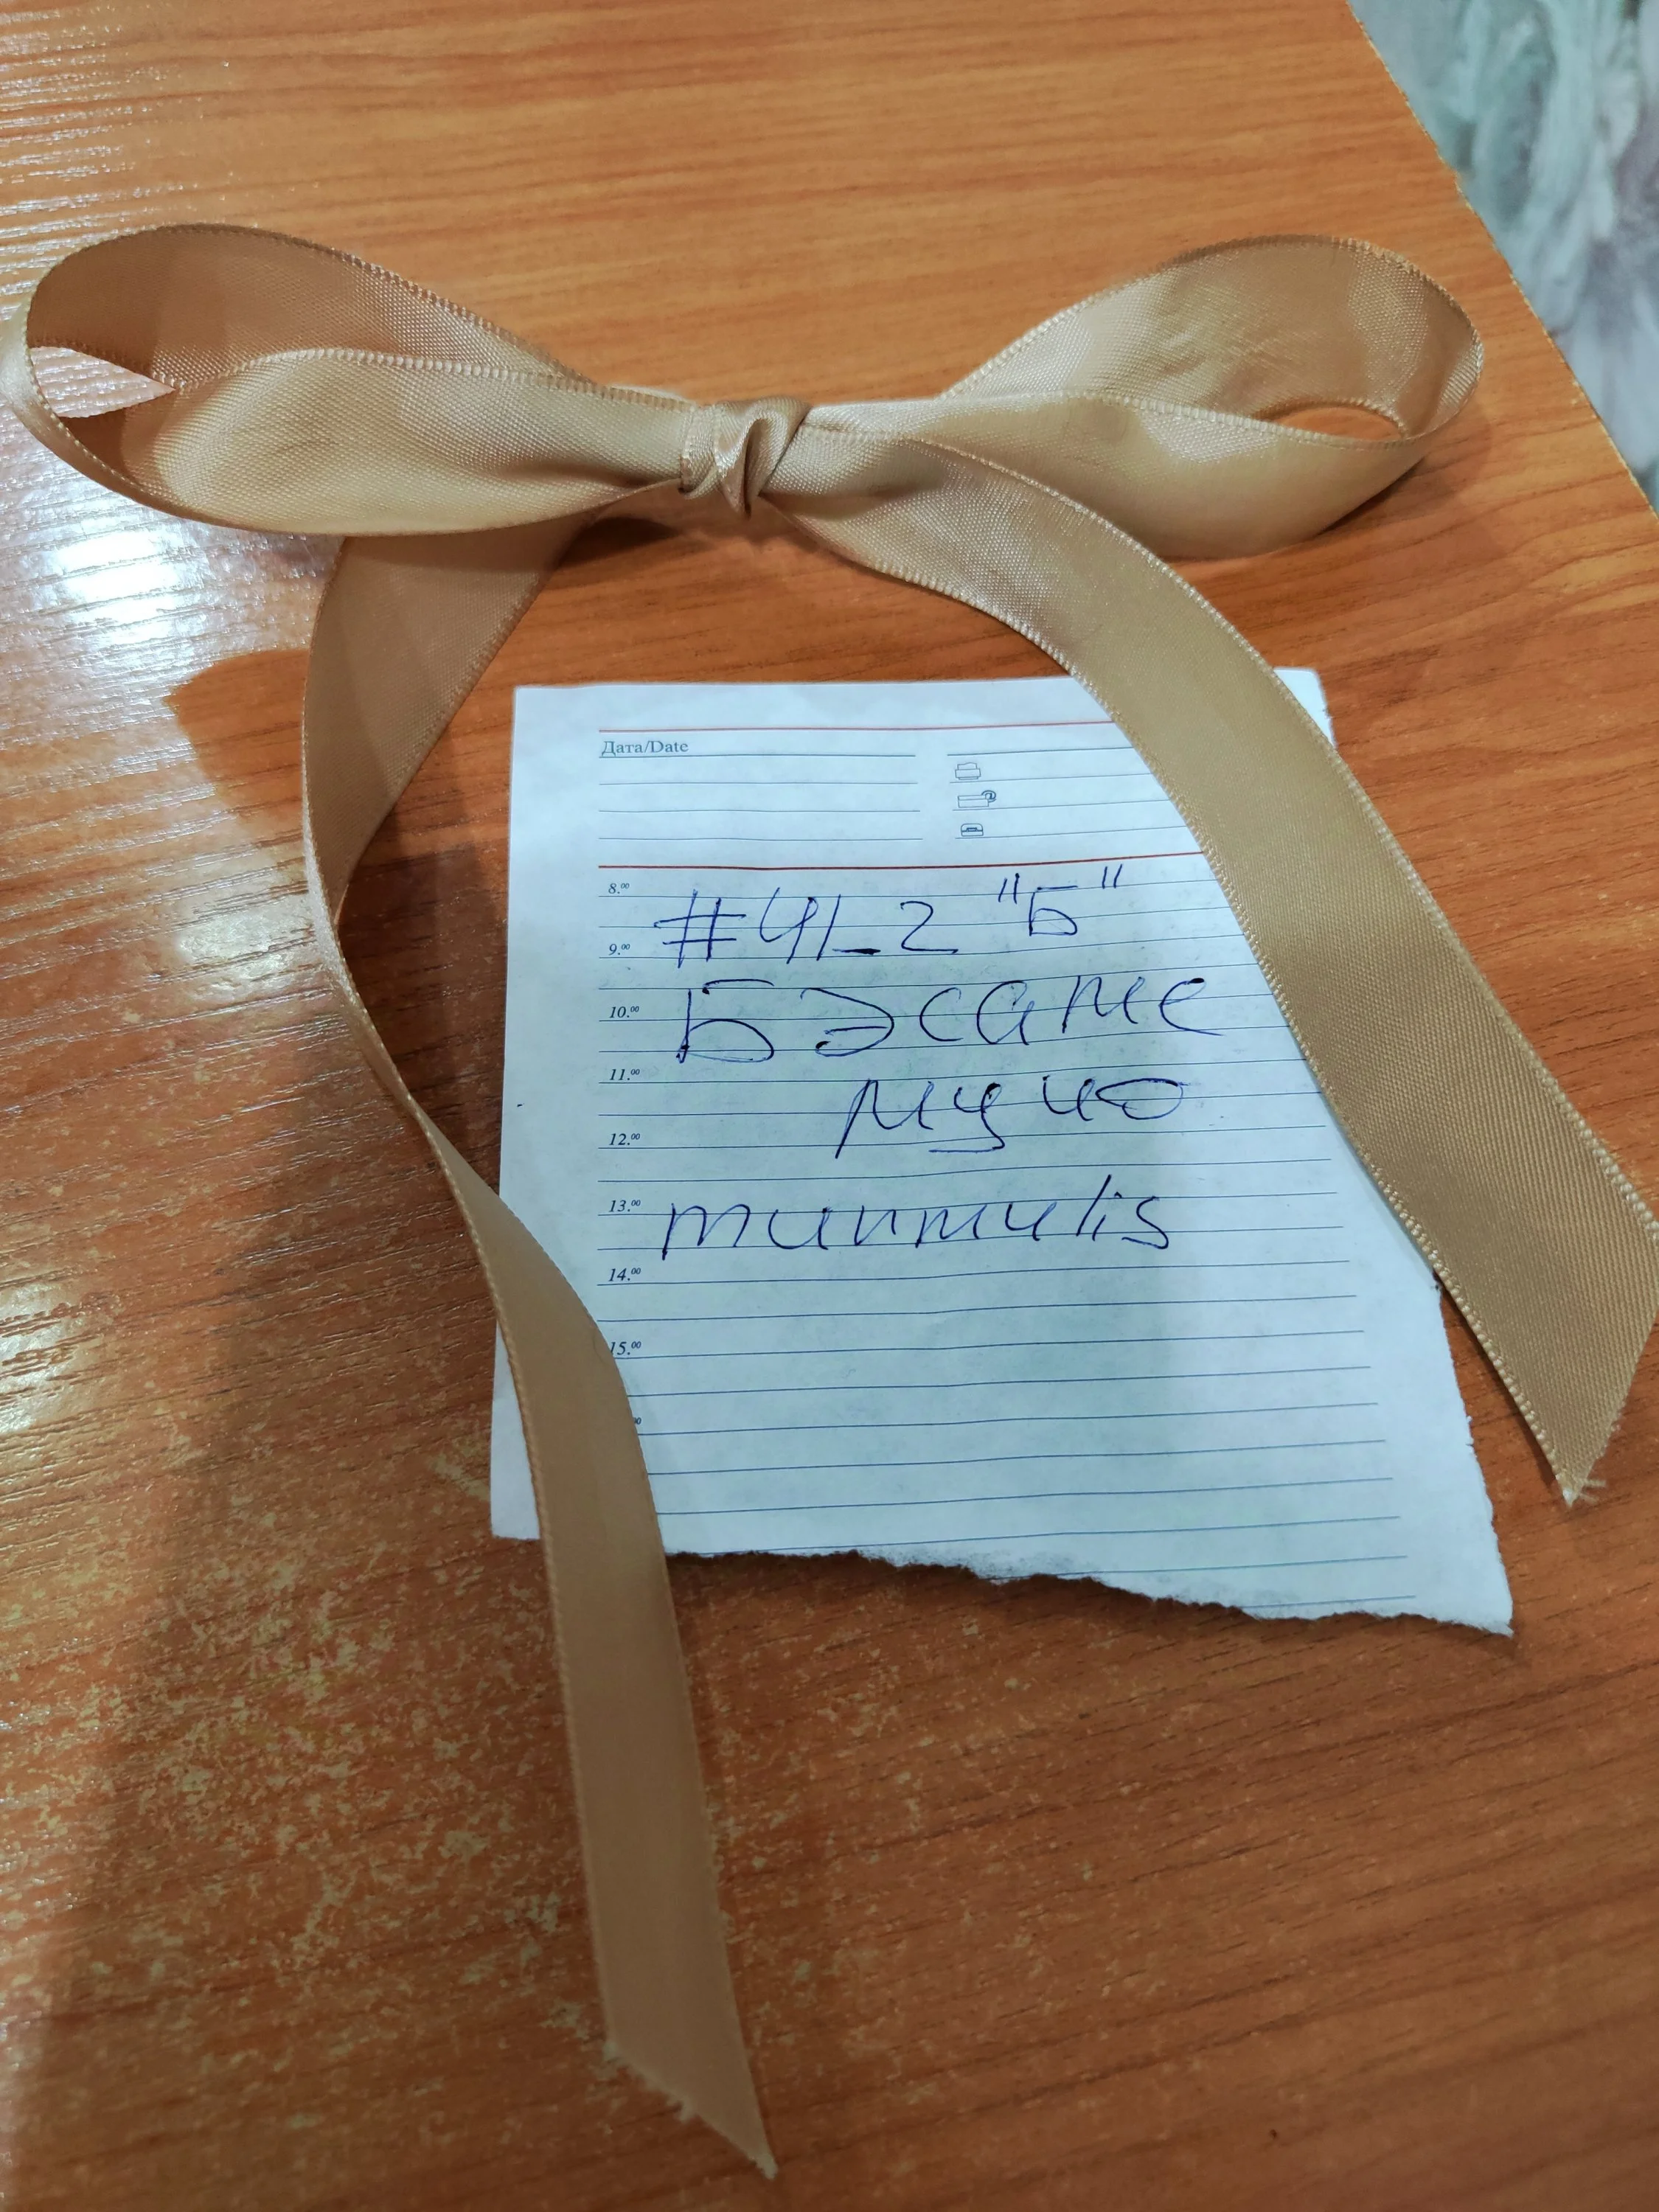 Дата/Date
8.00
#41_2 "Б"
9.00
Бэсаме
10.00
11.00
мучо
12.00
13.00
14.00
15.00